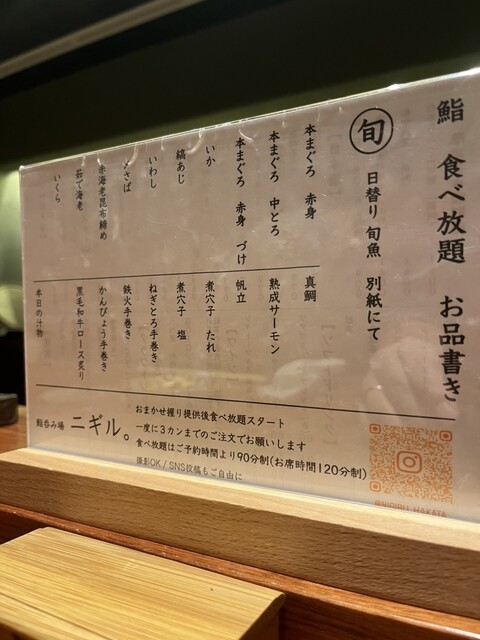 鮨 食べ放題 お品書き
旬 日替り 旬魚 別紙にて
本まぐろ 赤身
本まぐろ 中とろ
本まぐろ 赤身 づけ
いか
縞あじ
いわし
さば
赤海老昆布締め
茹で海老
いくら
真鯛
熟成サーモン
帆立
煮穴子 たれ
煮穴子 塩
ねぎとろ手巻き
鉄火手巻き
かんぴょう手巻き
黒毛和牛ロース炙り
本日の汁物
おまかせ握り提供後食べ放題スタート
一度に3カンまでのご注文でお願いします
食べ放題はご予約時間より90分制(お席時間120分制)
撮影OK / SNS投稿もご自由に
鮨呑み場 ニギル。
@NIGIRU_HAKATA